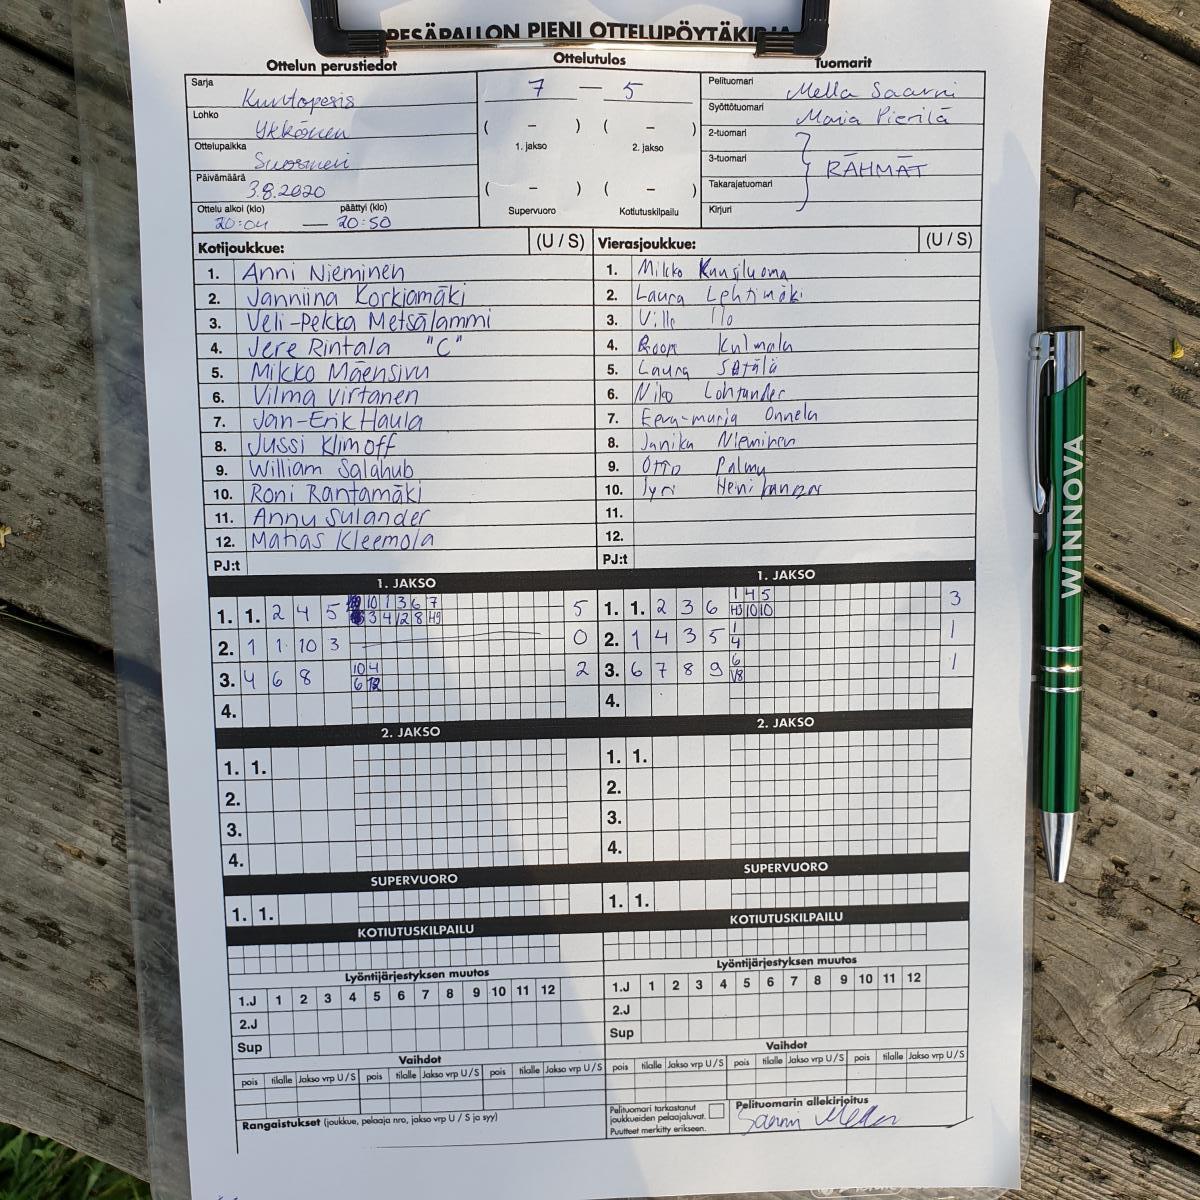 PESÄPALLON PIENI OTTELUPÖYTÄKIRJA
Ottelun perustiedot
Ottelutulos
Tuomarit
Sarja Kuntopesis
Lohko Ykkönen
Ottelupaikka Suosmeri
Päivämäärä 3.8.2020
Ottelu alkoi (klo) päättyi (klo)
20:04 — 20:50
7 — 5
( – ) ( – )
1. jakso 2. jakso
( – ) ( – )
Supervuoro Kotiutuskilpailu
Pelituomari Mella Saarni
Syöttötuomari Maria Pierilä
2-tuomari
3-tuomari RÄHMÄT
Takarajatuomari
Kirjuri
Kotijoukkue: (U / S)
1. Anni Nieminen
2. Janniina Korkiamäki
3. Veli-Pekka Metsälammi
4. Jere Rintala "C"
5. Mikko Mäensivu
6. Vilma Virtanen
7. Jan-Erik Haula
8. Jussi Klimoff
9. William Salahub
10. Roni Rantamäki
11. Annu Sulander
12. Matias Kleemola
PJ:t
Vierasjoukkue: (U / S)
1. Mikko Kuusiluoma
2. Laura Lehtimäki
3. Ville Ilo
4. Kulmala
5. Laura Sätälä
6. Niko Lohtander
7. Eeva-maria Onnela
8. Janika Nieminen
9. Otto Palmu
10. Jyri
11.
12.
PJ:t
1. JAKSO
1. 1. 2 4 5 10 1 3 6 7 5
3 4 12 8 H9
2. 1 1 10 3 0
3. 4 6 8 10 4 2
6 12
4.
1. JAKSO
1. 1. 2 3 6 1 4 5 3
H3 10 10
2. 1 4 3 5 1 1
4
3. 6 7 8 9 6 1
V8
4.
2. JAKSO
1. 1.
2.
3.
4.
2. JAKSO
1. 1.
2.
3.
4.
SUPERVUORO
1. 1.
SUPERVUORO
1. 1.
KOTIUTUSKILPAILU
KOTIUTUSKILPAILU
Lyöntijärjestyksen muutos
1.J 1 2 3 4 5 6 7 8 9 10 11 12
2.J
Sup
Lyöntijärjestyksen muutos
1.J 1 2 3 4 5 6 7 8 9 10 11 12
2.J
Sup
Vaihdot
pois tilalle Jakso vrp U / S pois tilalle Jakso vrp U / S pois tilalle Jakso vrp U / S
Vaihdot
pois tilalle Jakso vrp U / S pois tilalle Jakso vrp U / S pois tilalle Jakso vrp U / S
Rangaistukset (joukkue, pelaaja nro, jakso vrp U / S ja syy)
Pelituomari tarkastanut
joukkueiden pelaajaluvat.
Puutteet merkitty erikseen.
Pelituomarin allekirjoitus
Saarni Mella
WINNOVA